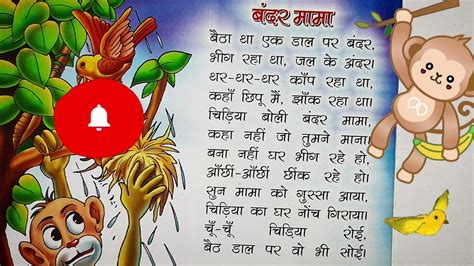 बंदर मामा
बैठा था एक डाल पर बंदर,
भीग रहा था, जल के अंदर।
थर-थर-थर काँप रहा था,
कहाँ छिपू मैं, झाँक रहा था।
चिड़िया बोली बंदर मामा,
कहा नहीं जो तुमने माना।
बना नहीं घर भीग रहे हो,
आँछीं-आँछीं छींक रहे हो।
सुन मामा को गुस्सा आया,
चिड़िया का घर नोंच गिराया।
चूँ-चूँ चिड़िया रोई,
बैठ डाल पर वो भी सोई।